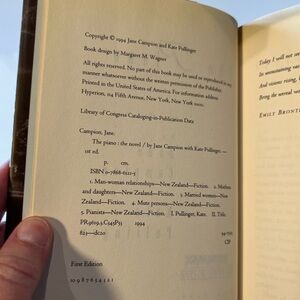 Copyright © 1994 Jane Campion and Kate Pullinger
Book design by Margaret M. Wagner
All rights reserved. No part of this book may be used or reproduced in any
manner whatsoever without the written permission of the Publisher.
Printed in the United States of America. For information address
Hyperion, 114 Fifth Avenue, New York, New York 10011.
Library of Congress Cataloging-in-Publication Data
Campion, Jane.
The piano : the novel / by Jane Campion with Kate Pullinger. —
1st ed.
p. cm.
ISBN 0-7868-6122-5
1. Man-woman relationships—New Zealand—Fiction. 2. Mothers
and daughters—New Zealand—Fiction. 3. Married women—New
Zealand—Fiction. 4. Mute persons—New Zealand—Fiction.
5. Pianists—New Zealand—Fiction. I. Pullinger, Kate. II. Title.
PR9619.3.C3125P5 1994
823—dc20
CIP
First Edition
10 9 8 7 6 5 4 3 2 1
Today I will not se
Its unsustaining vas
And visions rising, l
Bring the unreal wo
EMILY BRONT